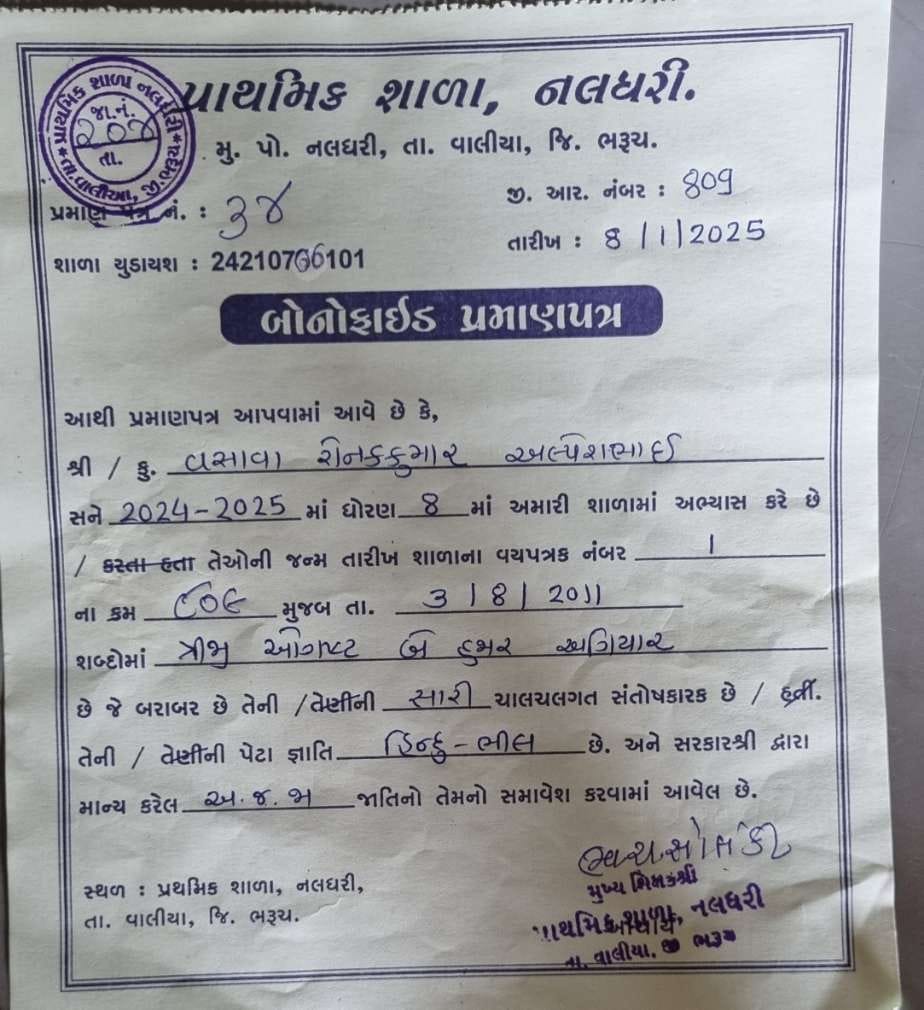 પ્રાથમિક શાળા, નલધરી.
મુ. પો. નલધરી, તા. વાલીયા, જિ. ભરૂચ.
પ્રાથમિક શાળા નલધરી
તા. વાલીઆ, જી. ભરૂચ
જા.નં.
તા.
પ્રમાણ પત્ર નં. : ૩૪
જી. આર. નંબર : 809
તારીખ : 8/1/2025
શાળા યુડાયશ : 24210706101
બોનોફાઈડ પ્રમાણપત્ર
આથી પ્રમાણપત્ર આપવામાં આવે છે કે,
શ્રી / કુ. વસાવા રોનકકુમાર અલ્પેશભાઈ
સને 2024-2025 માં ધોરણ 8 માં અમારી શાળામાં અભ્યાસ કરે છે
/ કરતા હતા તેઓની જન્મ તારીખ શાળાના વયપત્રક નંબર 1
ના ક્રમ ૮૦૯ મુજબ તા. 3/8/2011
શબ્દોમાં ત્રીજી ઓગષ્ટ બે હજાર અગિયાર
છે જે બરાબર છે તેની / તેણીની સારી ચાલચલગત સંતોષકારક છે / હતી.
તેની / તેણીની પેટા જ્ઞાતિ હિન્દુ-ભીલ છે. અને સરકારશ્રી દ્વારા
માન્ય કરેલ અ.જ.જા જાતિનો તેમનો સમાવેશ કરવામાં આવેલ છે.
મુખ્ય શિક્ષકશ્રી
પ્રાથમિક શાળા, નલધરી
તા. વાલીયા. જી ભરૂચ
સ્થળ : પ્રથમિક શાળા, નલઘરી,
તા. વાલીયા, જિ. ભરૂચ.